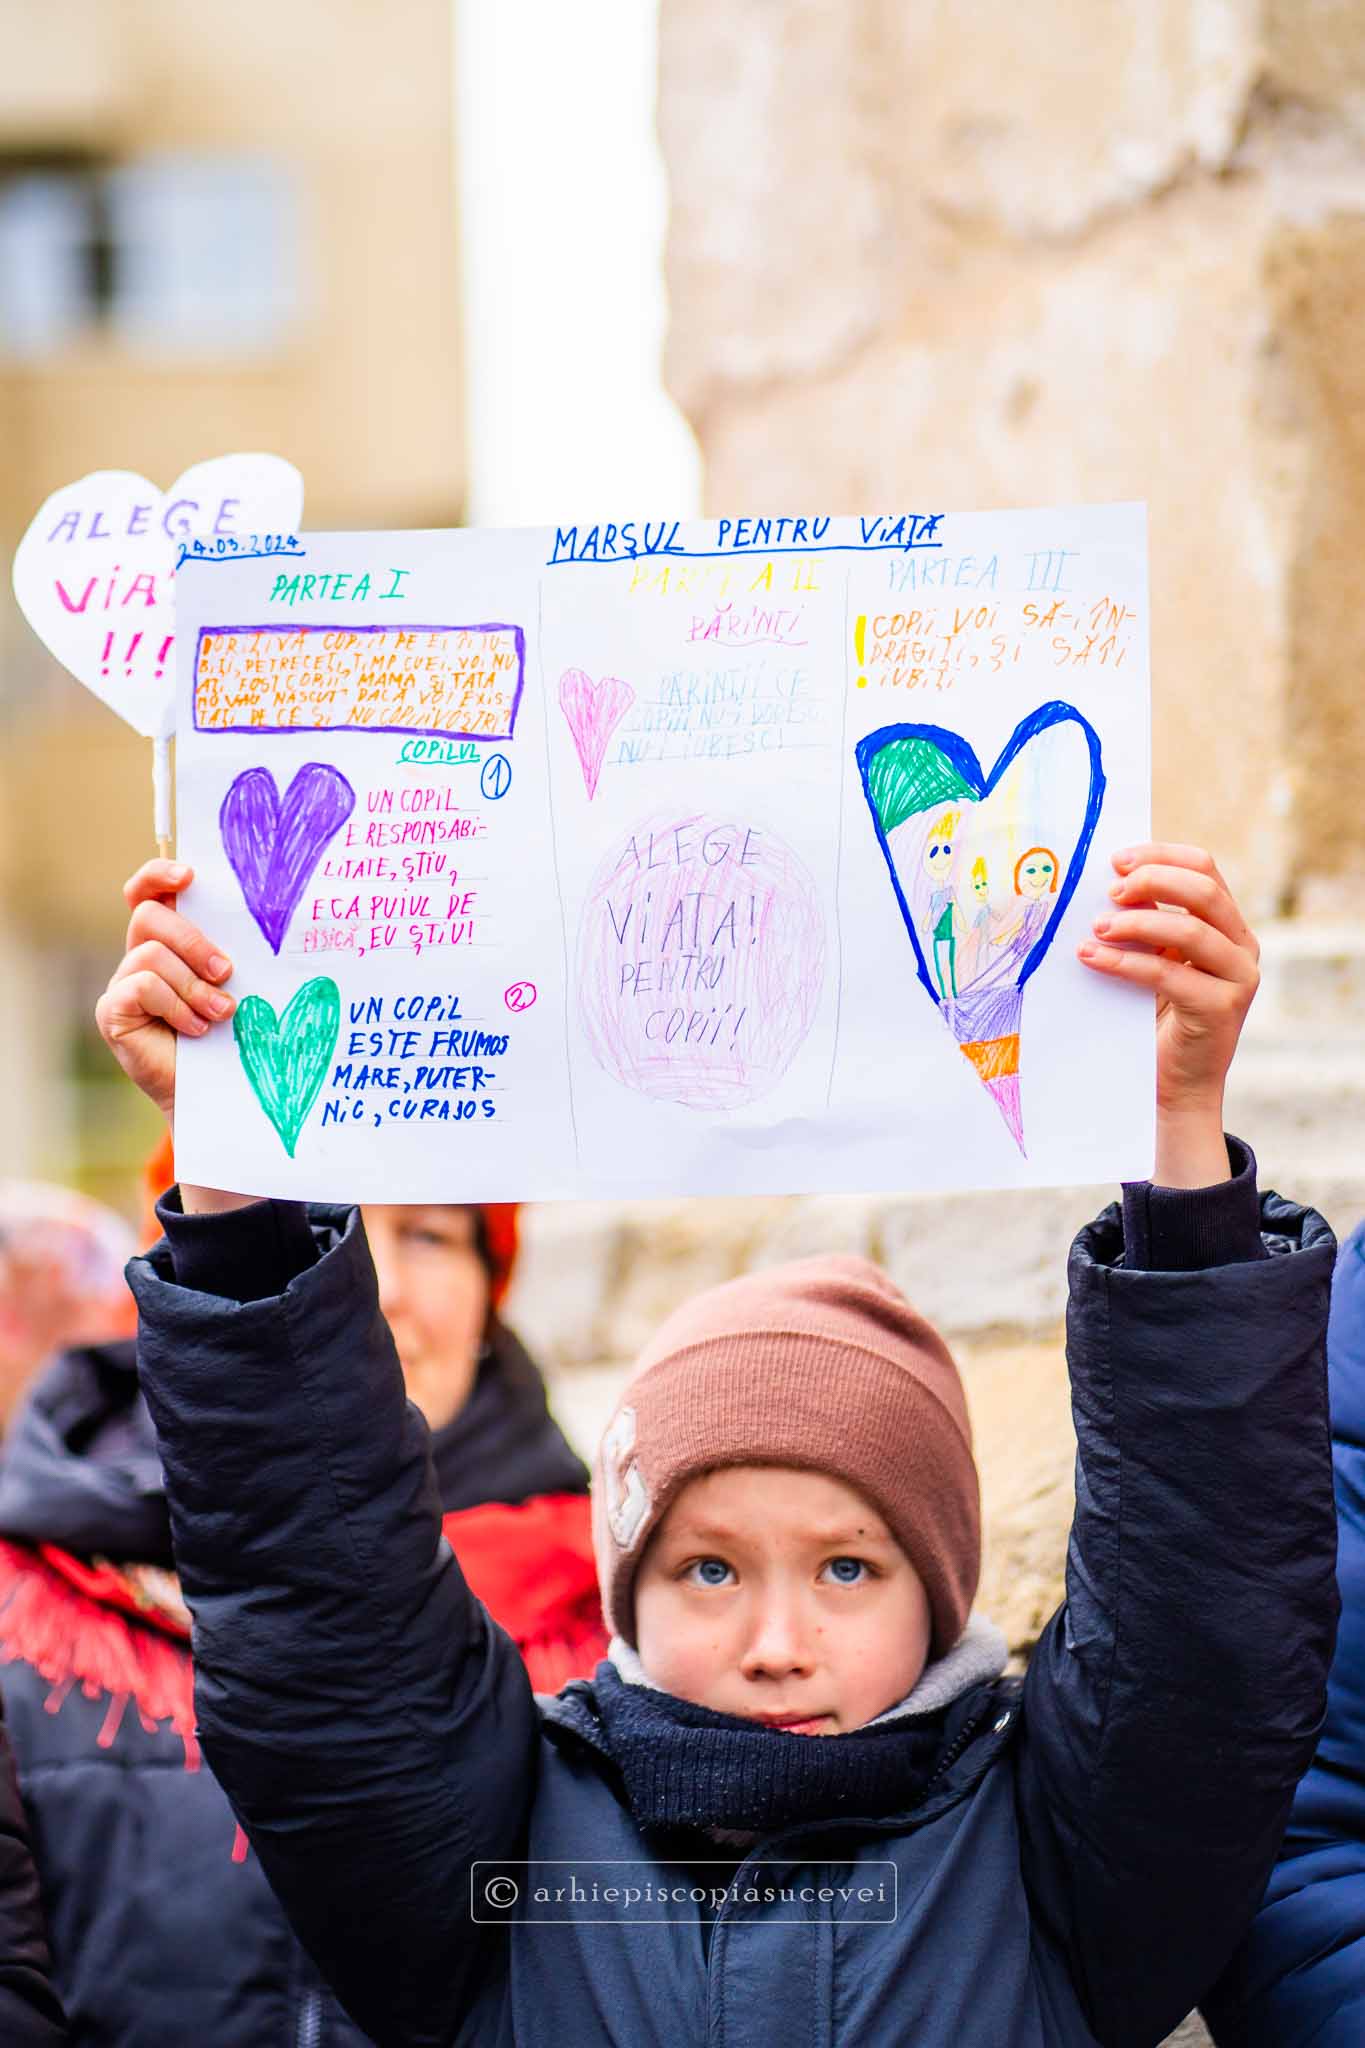 ALEGE
VIAȚ
!!!
24.03.2024
MARȘUL PENTRU VIAȚĂ
PARTEA I
DORIȚIVĂ COPIII PE EI ÎI IU-
BIȚI, PETRECEȚI, TIMP CU EI. VOI NU
AȚI FOST COPII, MAMA ȘI TATA
NU VAU NASCUT? DACĂ VOI EXIS-
TAȚI DE CE ȘI NU COPIIIVOȘTRI?
COPILUL
1
UN COPIL
E RESPONSABI-
LITATE, ȘTIU,
E CA PUIUL DE
PISICĂ, EU ȘTIU!
2
UN COPIL
ESTE FRUMOS
MARE, PUTER-
NIC, CURAJOS
PARTEA II
PĂRINȚI
PĂRINȚII CE
COPIII NU-I DORESC
NU-I IUBESC!
ALEGE
VIAȚA!
PENTRU
COPII!
PARTEA III
! COPII VOI SĂ-I ÎN-
DRĂGIȚI, ȘI SĂ ÎI
IUBIȚI
© arhiepiscopiasucevei